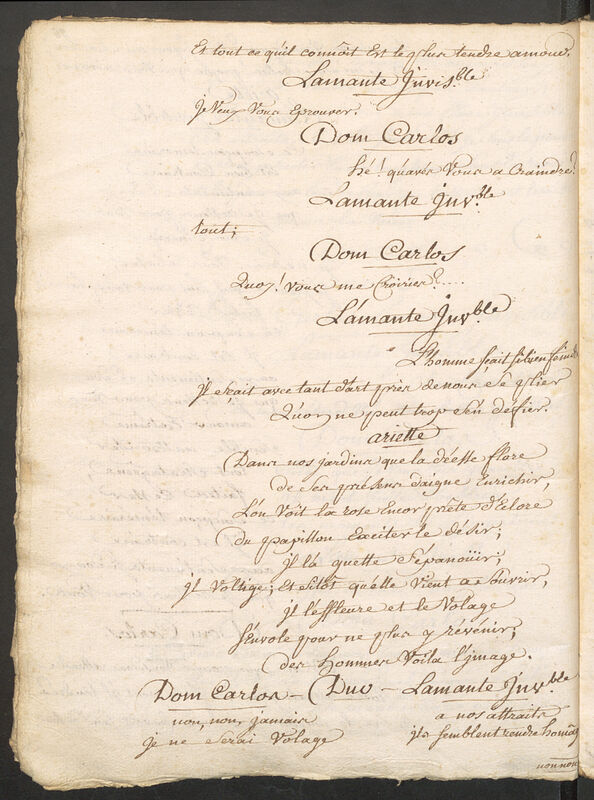 Et tout ce qu'il connoit Est le plus tendre amour.
Lamante Invis.ble
je Veux Vous Eprouver.
Dom Carlos
hé! quavés Vous a Craindre?
Lamante jnv.ble
tout;
Dom Carlos
Quoy! Vous me Croiriés?....
L'amante Jnv.ble
L'homme sçait si bien feindre
jl sçait avec tant d'art près de nous se plier
Quon ne peut trop s'en défier.
ariette
Dans nos jardins que la déesse flore
de ses présens daigne Enrichir,
L'on Voit la rose Encor prête d'Eclore
du papillon Exciter le désir;
jl la guette s'épanoüir;
jl Voltige; Et sitôt qu'elle Vient a s'ouvrir,
jl l'effleure et le Volage
S'envole pour ne plus y révénir;
des hommes Voila l'jmage.
Dom Carlos - Duo - Lamante Jnv.ble
non, non, jamais a nos attraits
je ne serai Volage jls semblent rendre homag
non non